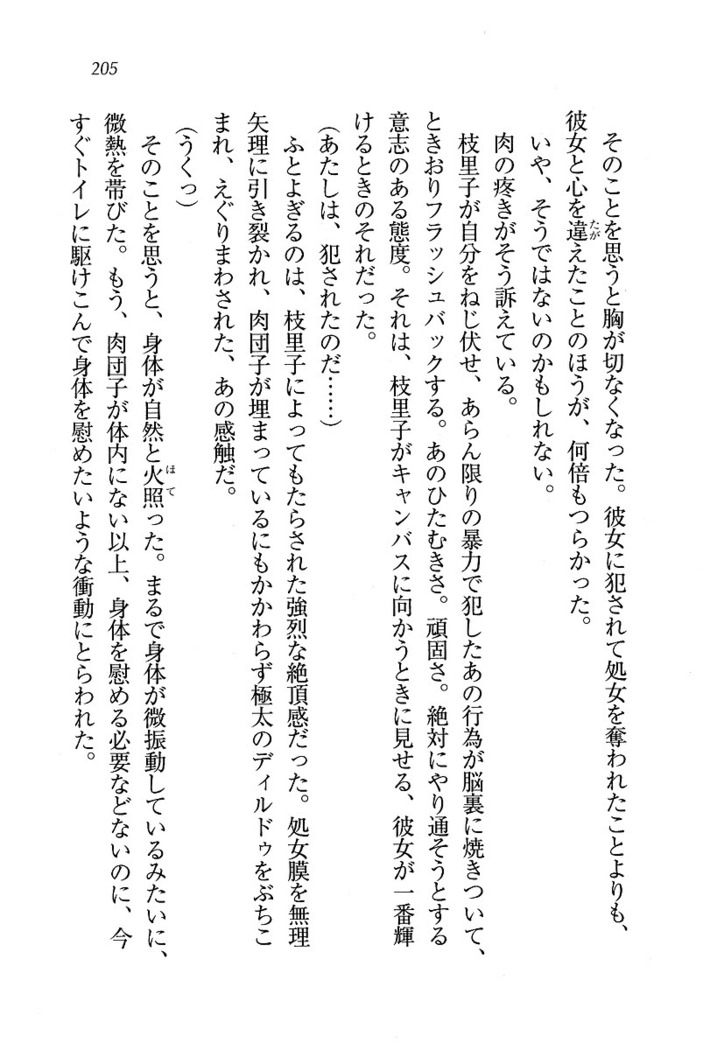 205
そのことを思うと胸が切なくなった。彼女に犯されて処女を奪われたことよりも、
彼女と心を違えたことのほうが、何倍もつらかった。
いや、そうではないのかもしれない。
肉の疼きがそう訴えている。
枝里子が自分をねじ伏せ、あらん限りの暴力で犯したあの行為が脳裏に焼きついて、
ときおりフラッシュバックする。あのひたむきさ。頑固さ。絶対にやり通そうとする
意志のある態度。それは、枝里子がキャンバスに向かうときに見せる、彼女が一番輝
けるときのそれだった。
（あたしは、犯されたのだ……）
ふとよぎるのは、枝里子によってもたらされた強烈な絶頂感だった。処女膜を無理
矢理に引き裂かれ、肉団子が埋まっているにもかかわらず極太のディルドゥをぶちこ
まれ、えぐりまわされた、あの感触だ。
（うくっ）
そのことを思うと、身体が自然と火照った。まるで身体が微振動しているみたいに、
微熱を帯びた。もう、肉団子が体内にない以上、身体を慰める必要などないのに、今
すぐトイレに駆けこんで身体を慰めたいような衝動にとらわれた。